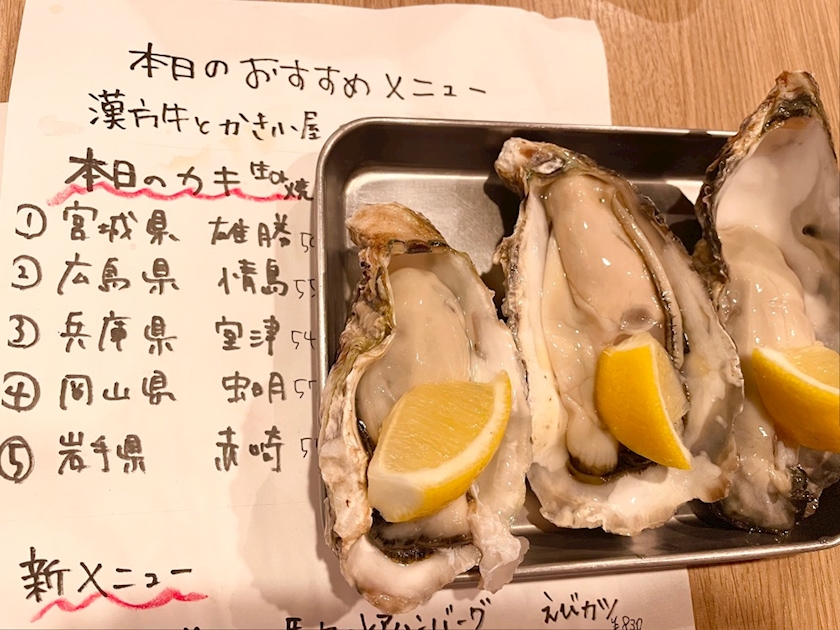 本日のおすすめメニュー
漢方牛とかき小屋
本日のカキ 生or焼
① 宮城県 雄勝
② 広島県 情島
③ 兵庫県 室津
④ 岡山県 虫明
⑤ 岩手県 赤崎
新メニュー
ハンバーグ えびカツ
¥830